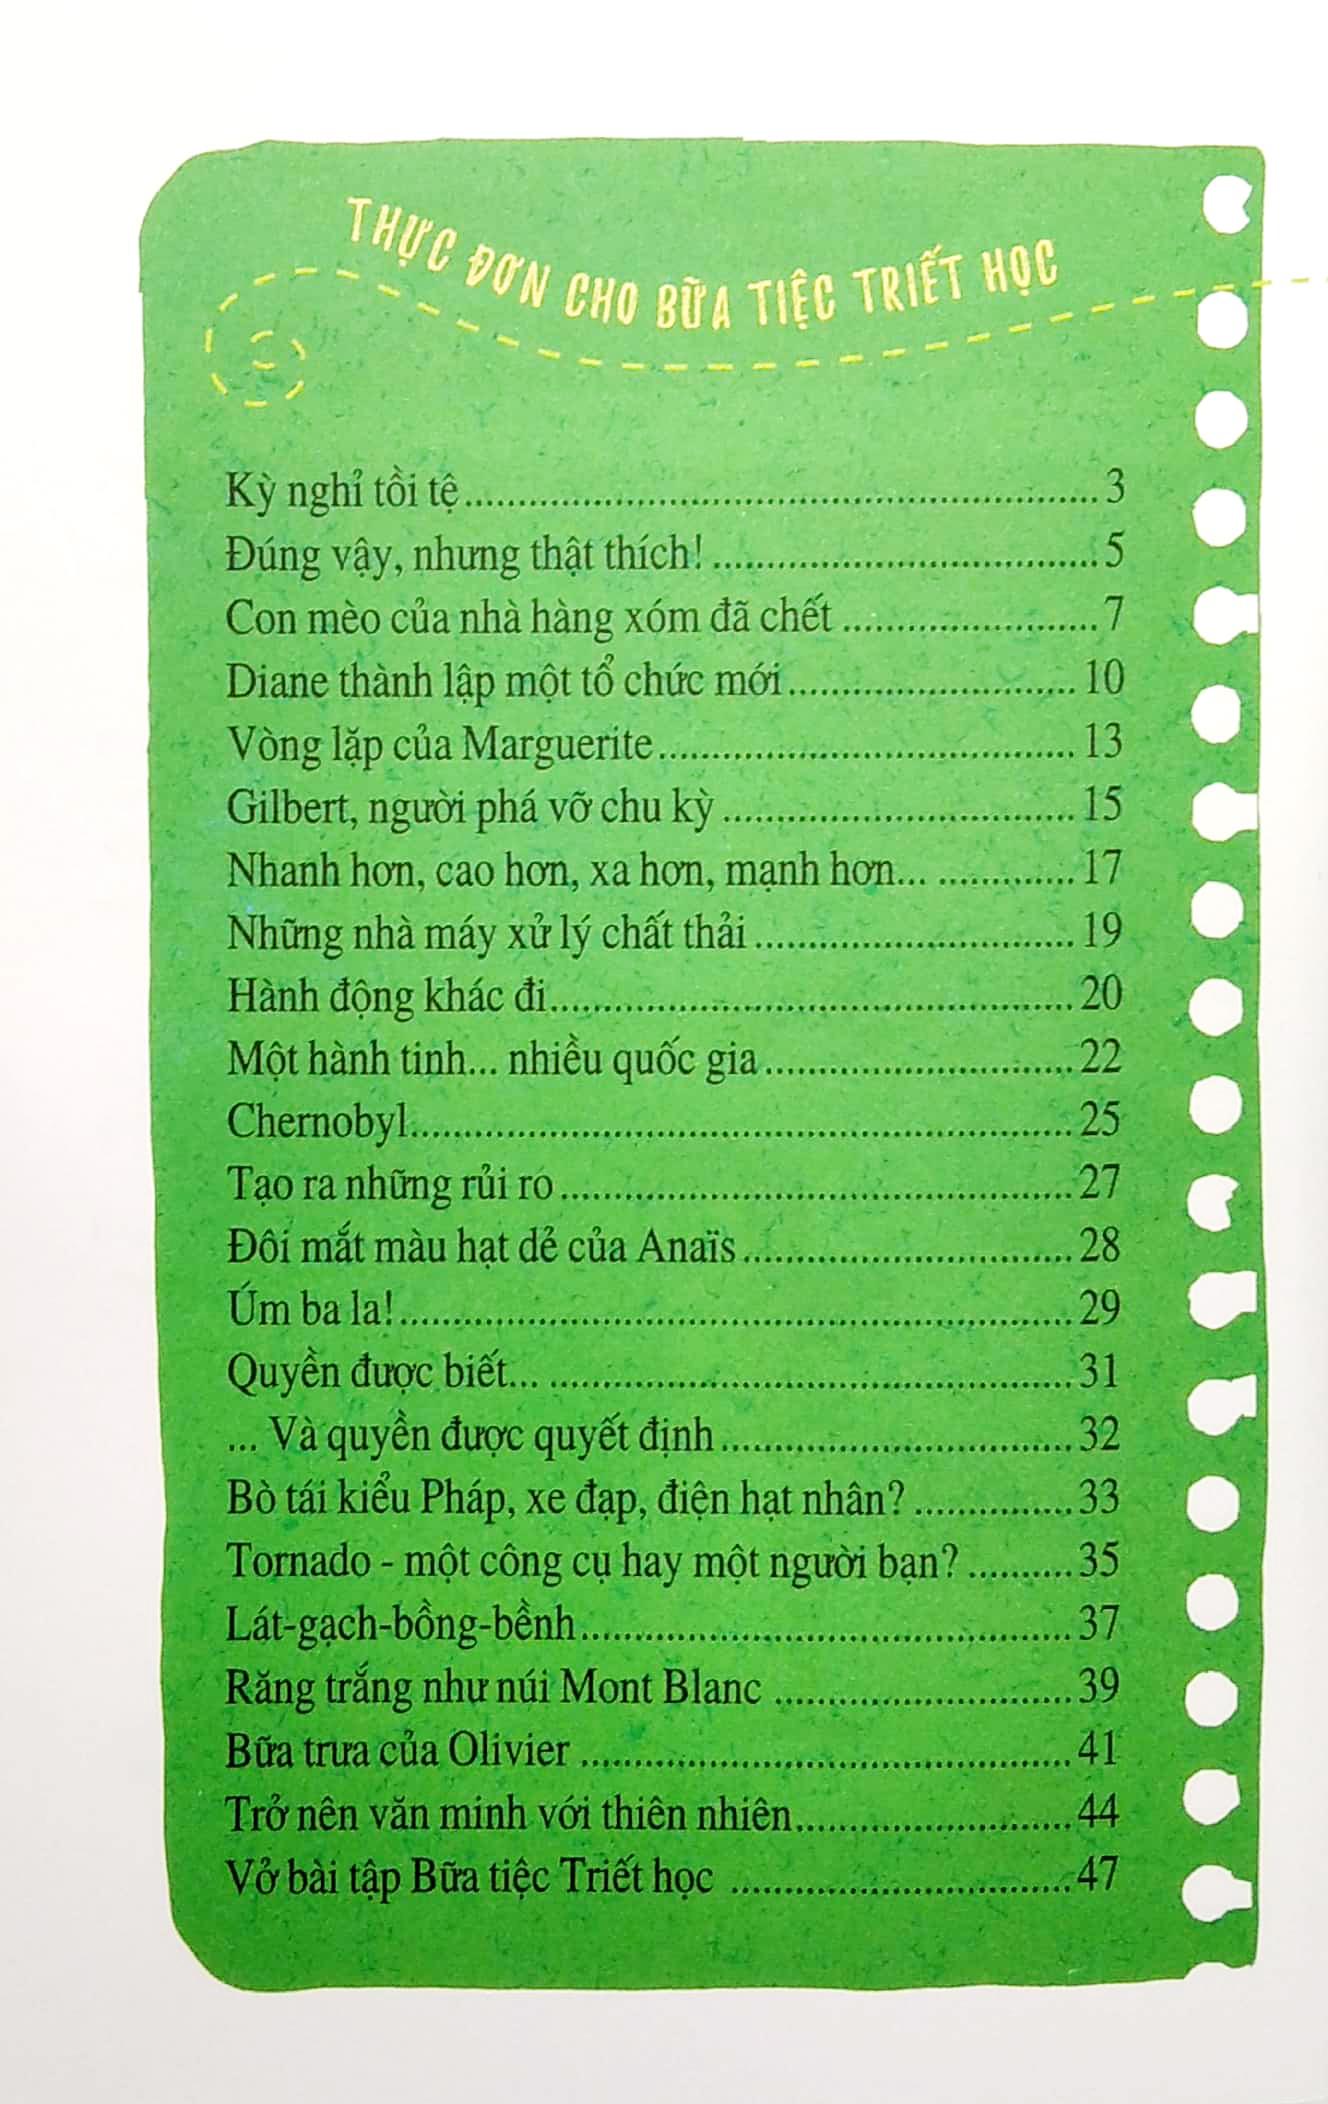 THỰC ĐƠN CHO BỮA TIỆC TRIẾT HỌC
Kỳ nghỉ tồi tệ 3
Đúng vậy, nhưng thật thích! 5
Con mèo của nhà hàng xóm đã chết 7
Diane thành lập một tổ chức mới 10
Vòng lặp của Marguerite 13
Gilbert, người phá vỡ chu kỳ 15
Nhanh hơn, cao hơn, xa hơn, mạnh hơn... 17
Những nhà máy xử lý chất thải 19
Hành động khác đi 20
Một hành tinh... nhiều quốc gia 22
Chernobyl 25
Tạo ra những rủi ro 27
Đôi mắt màu hạt dẻ của Anaïs 28
Úm ba la! 29
Quyền được biết... 31
... Và quyền được quyết định 32
Bò tái kiểu Pháp, xe đạp, điện hạt nhân? 33
Tornado - một công cụ hay một người bạn? 35
Lát-gạch-bồng-bềnh 37
Răng trắng như núi Mont Blanc 39
Bữa trưa của Olivier 41
Trở nên văn minh với thiên nhiên 44
Vở bài tập Bữa tiệc Triết học 47